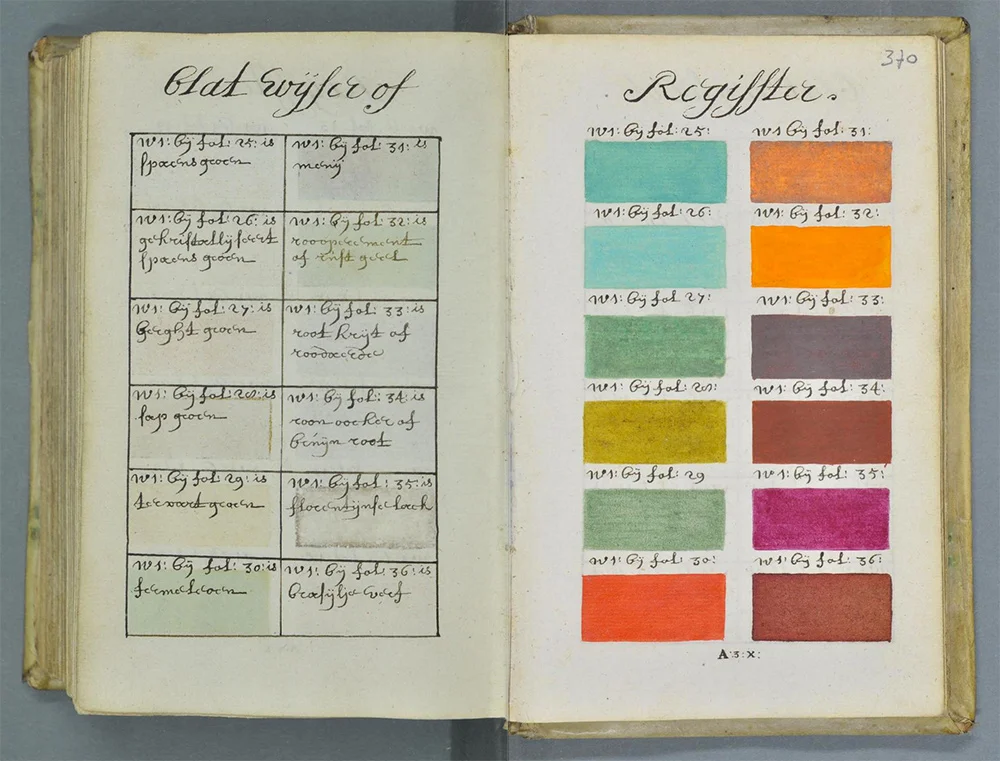 Blat wÿser of
w1: bÿ fol: 25: is
spaens groen
w1: bÿ fol: 31: is
menÿ
w1: bÿ fol: 26: is
gekristallÿseert
spaens groen
w1: bÿ fol: 32: is
roooperement
of rust geel
w1: bÿ fol: 27: is
berght groen
w1: bÿ fol: 33: is
root krÿt of
roodaerde
w1: bÿ fol: 28: is
sap groen
w1: bÿ fol: 34: is
roon oocker of
bruÿn root
w1: bÿ fol: 29: is
groen
w1: bÿ fol: 35: is
florentÿnse lack
w1: bÿ fol: 30: is
fermeloen
w1: bÿ fol: 36: is
brasÿlje verf
370
Regisster.
w1: bÿ fol: 25:
w1 bÿ fol: 31:
w1: bÿ fol: 26:
w1: bÿ fol: 32:
w1: bÿ fol: 27:
w1: bÿ fol: 33:
w1: bÿ fol: 28:
w1: bÿ fol: 34:
w1: bÿ fol: 29
w1: bÿ fol: 35:
w1: bÿ fol: 30:
w1: bÿ fol: 36:
A:3:X: